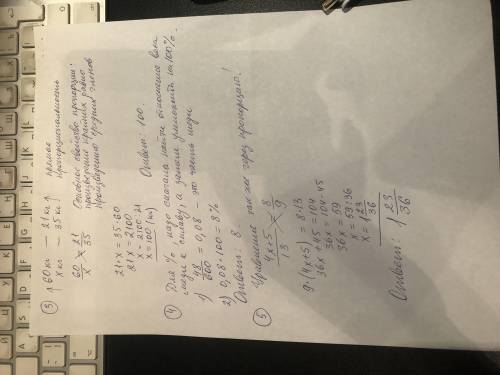 ③ ↑ 60 кг — 21 кг ↑ прямая
x кг — 35 кг пропорциональность
60/x = 21/35
Основное свойство пропорции:
произведение крайних равно
произведению средних членов
21·x = 35·60
21x = 2100
x = 2100:21
x = 100 (кг)
Ответ: 100.
④ Для %, надо сначала найти отношение
меди к сплаву, а затем умножить на 100%.
1) 48/600 = 0,08 – это часть меди
2) 0,08·100 = 8%
Ответ: 8.
⑤ Уравнение так же через пропорцию!
4x+5/13 = 8/9
9·(4x+5) = 8·13
36x+45 = 104
36x = 104-45
36x = 59
x = 59:36
x = 1 23/36
Ответ: 1 23/36